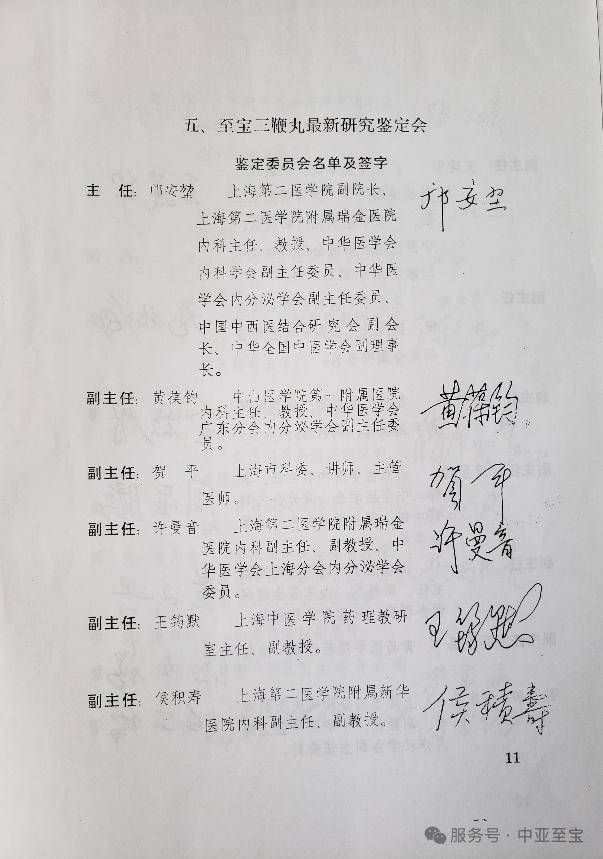 五、至宝三鞭丸最新研究鉴定会
鉴定委员会名单及签字
主 任：邝安堃 上海第二医学院副院长、 邝安堃
上海第二医学院附属瑞金医院
内科主任、教授、中华医学会
内科学会副主任委员、中华医
学会内分泌学会副主任委员、
中国中西医结合研究会副会
长、中华全国中医学会副理事
长。
副主任：黄葆钧 中山医学院第一附属医院 黄葆钧
内科主任、教授、中华医学会
广东分会内分泌学会副主任委
员。
副主任：贺 平 上海市科委、讲师、主管 贺平
医师。
副主任：许曼音 上海第二医学院附属瑞金 许曼音
医院内科副主任、副教授、中
华医学会上海分会内分泌学会
委员。
副主任：王筠默 上海中医学院药理教研 王筠默
室主任、副教授。
副主任：侯积寿 上海第二医学院附属新华 侯積壽
医院内科副主任、副教授。
11
服务号·中亚至宝